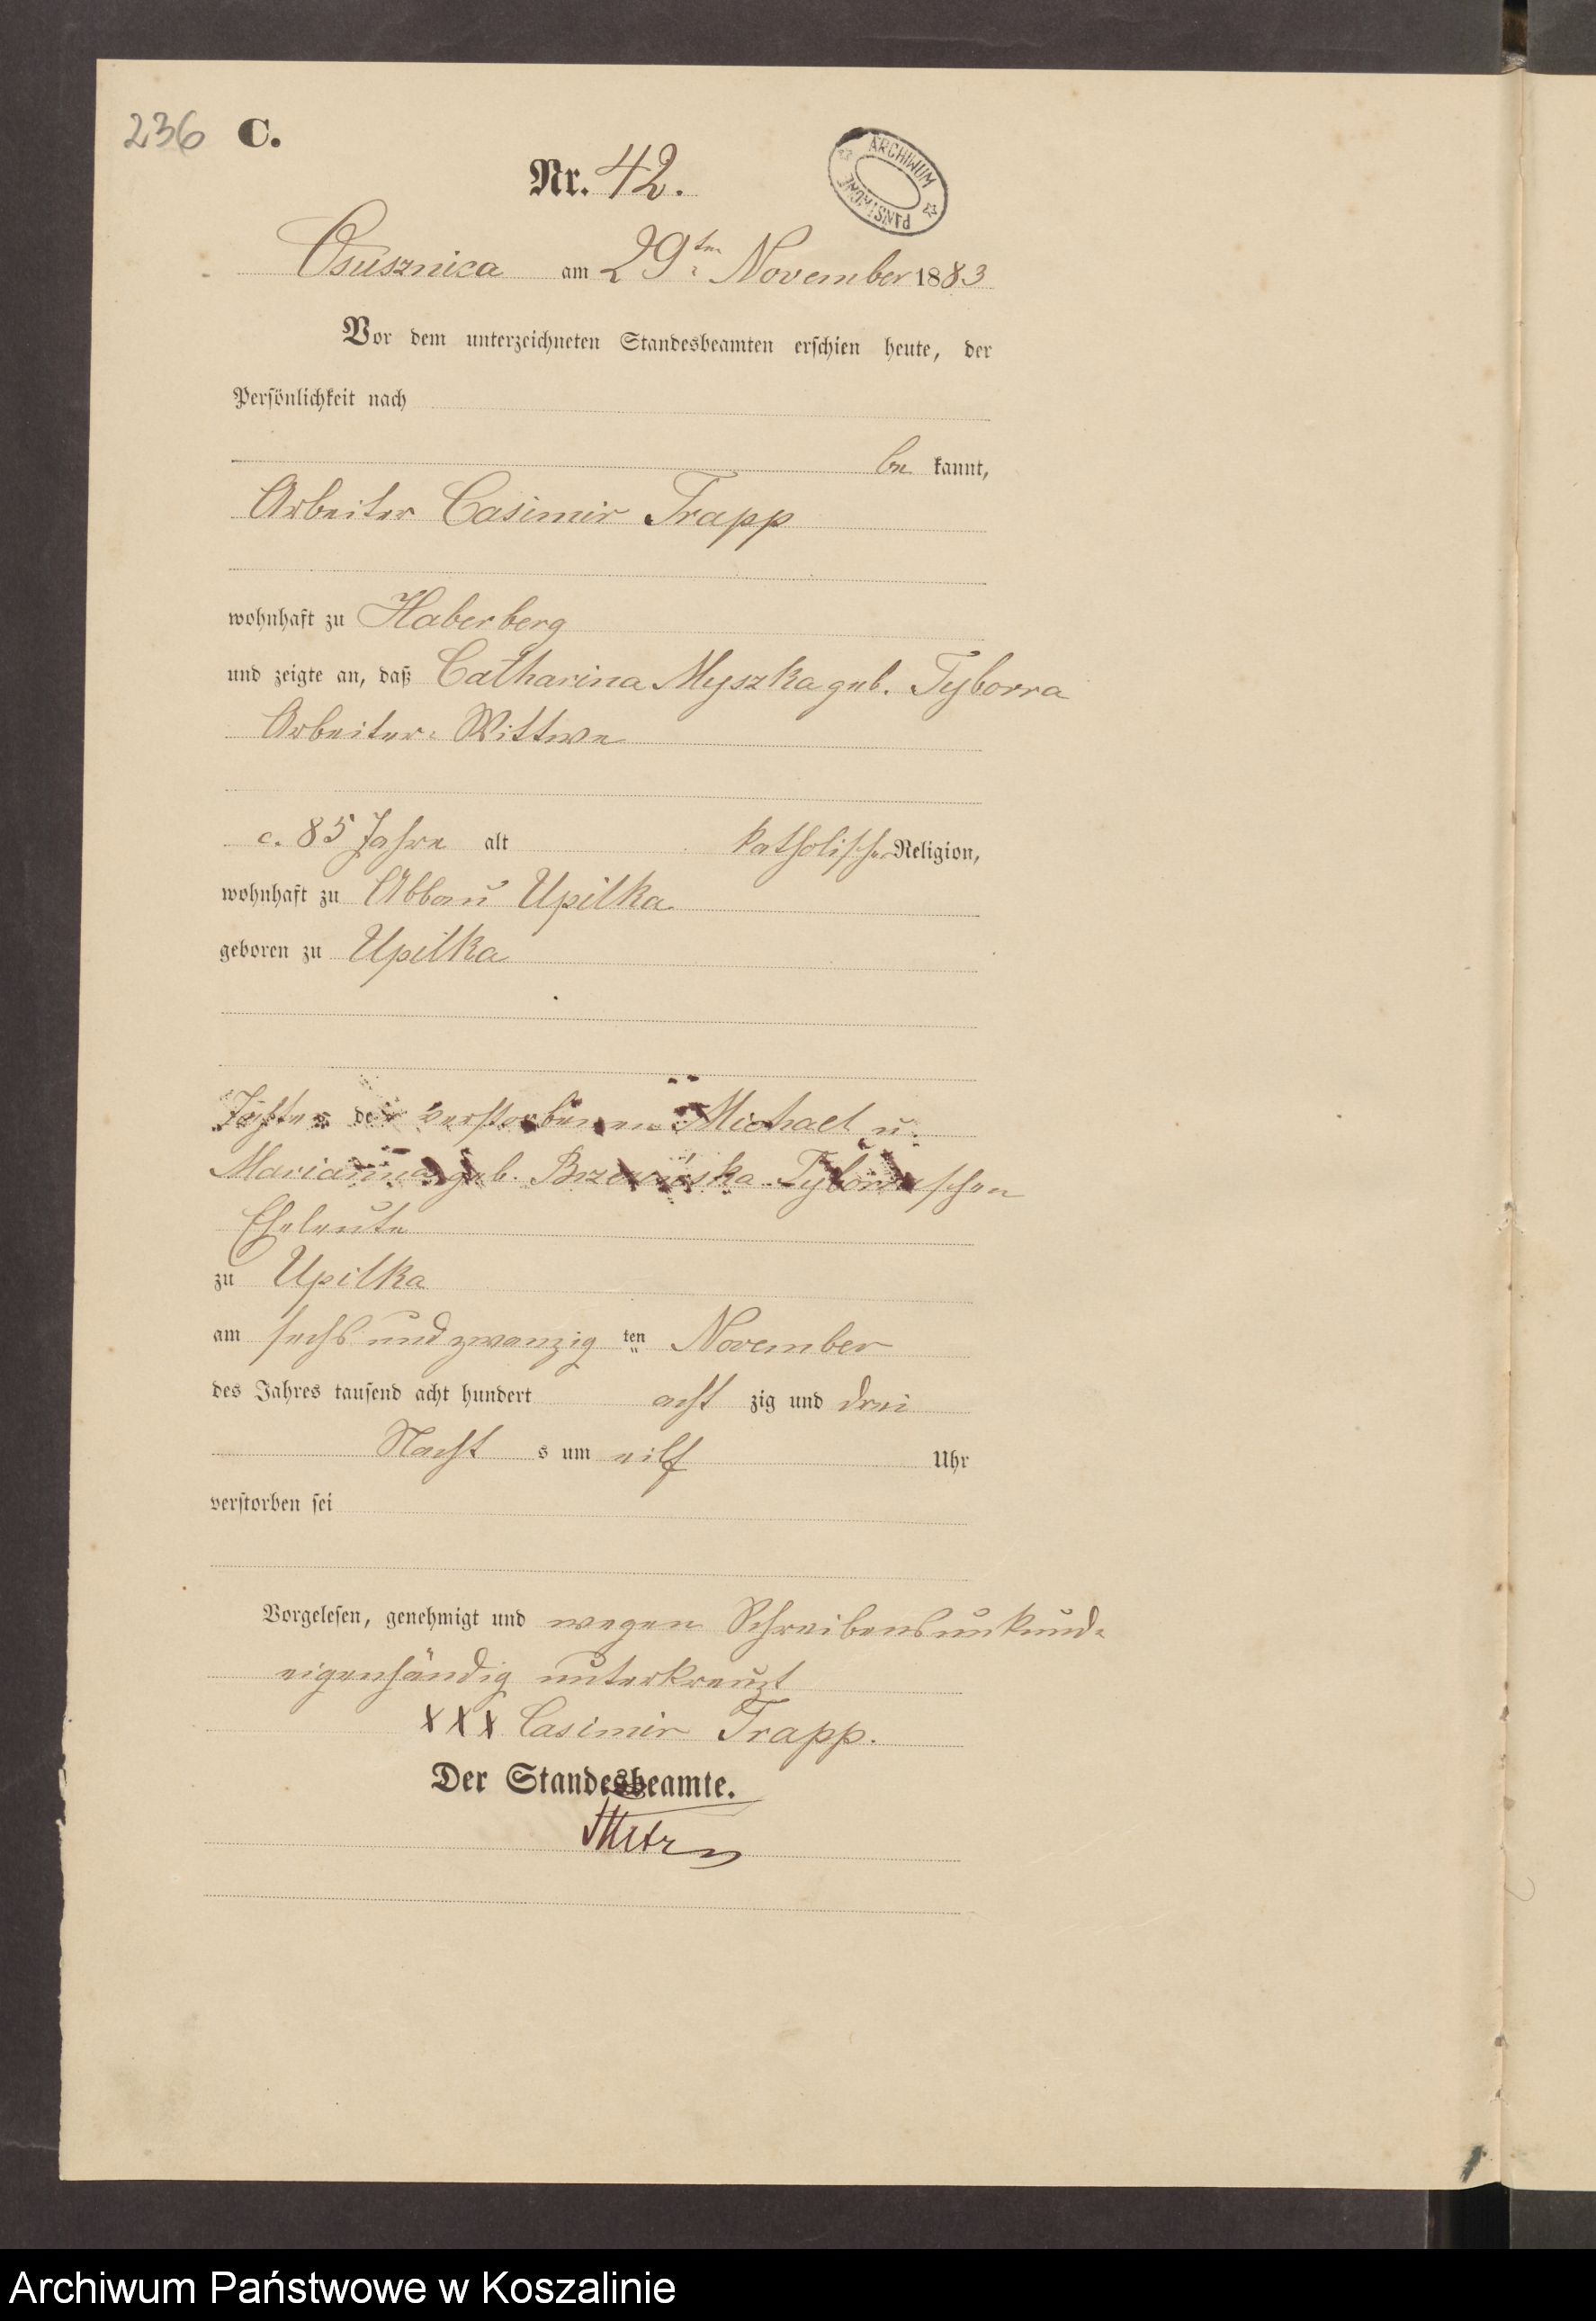 236 C.
Nr. 42.
ARCHIWUM PAŃSTWOWE
Osusznica am 29ten November 1883
Vor dem unterzeichneten Standesbeamten erschien heute, der
Persönlichkeit nach
be kannt,
Arbeiter Casimir Trapp
wohnhaft zu Haberberg
und zeigte an, daß Catharina Myszka geb. Tyborra
Arbeiter-Wittwe
c. 85 Jahre alt katholischer Religion,
wohnhaft zu Abbau Upilka
geboren zu Upilka
Tochter der verstorbenen Michael u.
Marianna geb. Tyborraschen
Eheleute
zu Upilka
am sechs und zwanzig ten November
des Jahres tausend acht hundert acht zig und drei
Nacht s um eilf Uhr
verstorben sei
Vorgelesen, genehmigt und wegen Schreibensunkunde
eigenhändig unterkreuzt
XXX Casimir Trapp.
Der Standesbeamte.
Archiwum Państwowe w Koszalinie